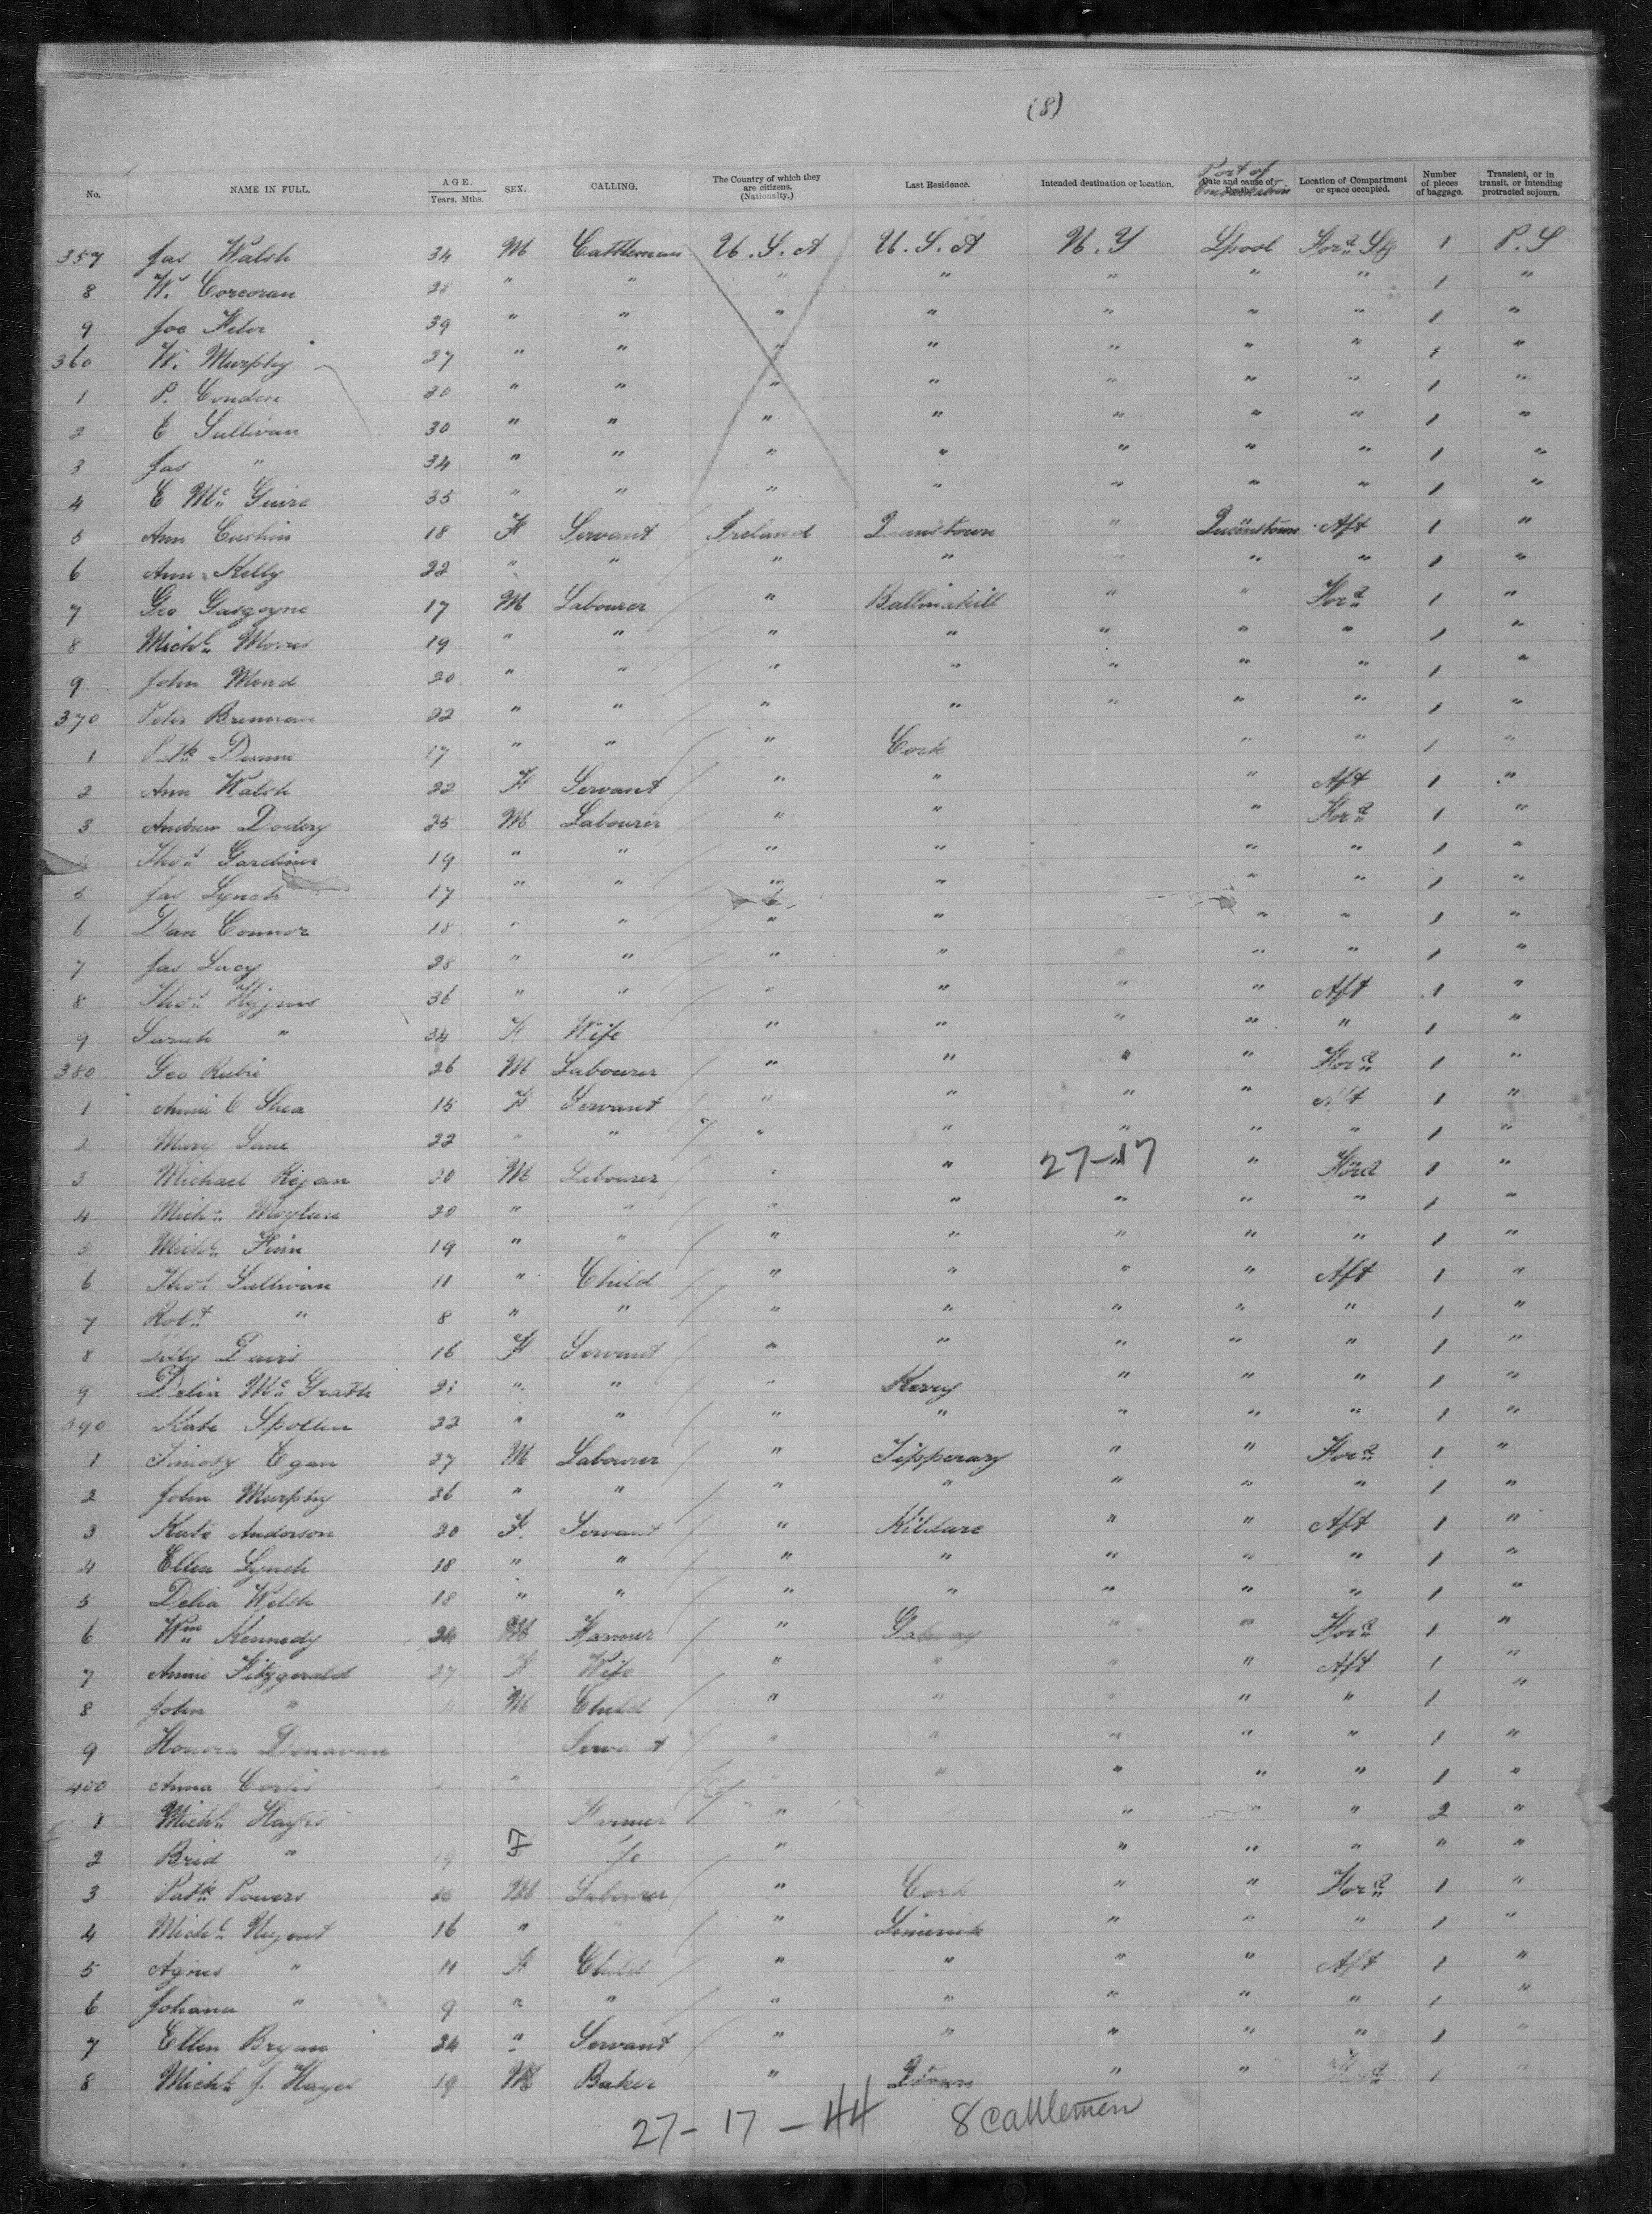 (8)
No. NAME IN FULL. AGE. Years. Mths. SEX. CALLING. The Country of which they are citizens. (Nationality.) Last Residence. Intended destination or location. Port of Date and cause of Death. Location of Compartment or space occupied. Number of pieces of baggage. Transient, or in transit, or intending protracted sojourn.
357 Jas Walsh 34 M Cattleman U.S.A U.S.A N.Y Lpool Ford Stg 1 P.S
8 W. Corcoran 28 " " " " " " " 1 "
9 Joe 39 " " " " " " " 1 "
360 W. Murphy 27 " " " " " " " 1 "
1 P. Conden 30 " " " " " " " 1 "
2 E Sullivan 30 " " " " " " " 1 "
3 Jas " 34 " " " " " " " 1 "
4 E Mc Guire 35 " " " " " " " 1 "
5 Ann Cushin 18 F Servant Ireland Queenstown " Queenstown Aft 1 "
6 Ann Kelly 22 " " " " " " " 1 "
7 Geo Gasgoyne 17 M Labourer " Ballinakill " " Ford 1 "
8 Michl Morris 19 " " " " " " " 1 "
9 John Mead 20 " " " " " " " 1 "
370 Peter Brennan 22 " " " " " " " 1 "
1 Patk Dunne 17 " " " Cork " " 1 "
2 Ann Walsh 22 F Servant " " " Aft 1 "
3 Andrew 25 M Labourer " " " Ford 1 "
Thos Gardiner 19 " " " " " " 1 "
5 Jas Lynch 17 " " " " " " 1 "
6 Dan Connor 18 " " " " " " 1 "
7 Jas Lucy 28 " " " " " " 1 "
8 Thos 36 " " " " " " Aft 1 "
9 Sarah " 34 F Wife " " " " " 1 "
380 Geo 26 M Labourer " " " " Ford 1 "
1 Annie O Shea 15 F Servant " " " " Aft 1 "
2 Mary Lane 22 " " " " " " " 1 "
3 Michael Regan 20 M Labourer " " 27-17 " Ford 1 "
4 Michl 20 " " " " " " " 1 "
5 Michl Finn 19 " " " " " " " 1 "
6 Thos Sullivan 11 " Child " " " " Aft 1 "
7 Robt " 8 " " " " " " " 1 "
8 Davis 16 F Servant " " " " " 1 "
9 Delia Mc Grath 21 " " " Kerry " " " 1 "
390 Kate Spollen 22 " " " " " " " 1 "
1 Timosy Egan 27 M Labourer " Tipperary " " Ford 1 "
2 John Murphy 26 " " " " " " " 1 "
3 Kate Anderson 20 F. Servant " Kildare " " Aft 1 "
4 Ellen Lynch 18 " " " " " " " 1 "
5 Delia Welsh 18 " " " " " " " 1 "
6 Wm Kennedy 24 M Farmer " Galway " " Ford 1 "
7 Annie Fitzgerald 27 F Wife " " " " Aft 1 "
8 John " M Child " " " " " 1 "
9 Honora Donavan Servant " " " " " 1 "
400 Anna " " " " " " 1 "
1 Michl Hayes Farmer " " " " 2 "
2 Brid " 19 F " " " " " "
3 Patk Powers M Labourer " Cork " " Ford 1 "
4 Michl Nugent 16 " " Limerick " " " 1 "
5 Agnes " 11 F Child " " " " Aft 1 "
6 Johana " 9 " " " " " " " 1 "
7 Ellen Bryan 24 " Servant " " " " " 1 "
8 Michl J. Hayes 19 M Baker " " " Ford 1 "
27-17-44 8 cattlemen